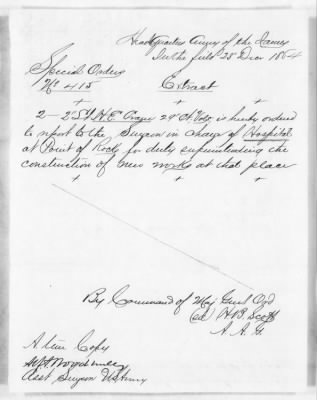 Headquarters Army of the James
In the field 25 Decr 1864
Special Orders
No 415
Extract
+ + +
2 – 2d Lt H.E. 29" Ct. Vols. is hereby ordered
to report to the Surgeon in charge of Hospital
at Point of Rocks for duty superintending the
construction of new works at that place
+ + +
By Command of Maj Genl Ord
(sd) H.B. Scott
A. A. G.
A true Copy
Asst Surgeon US Army